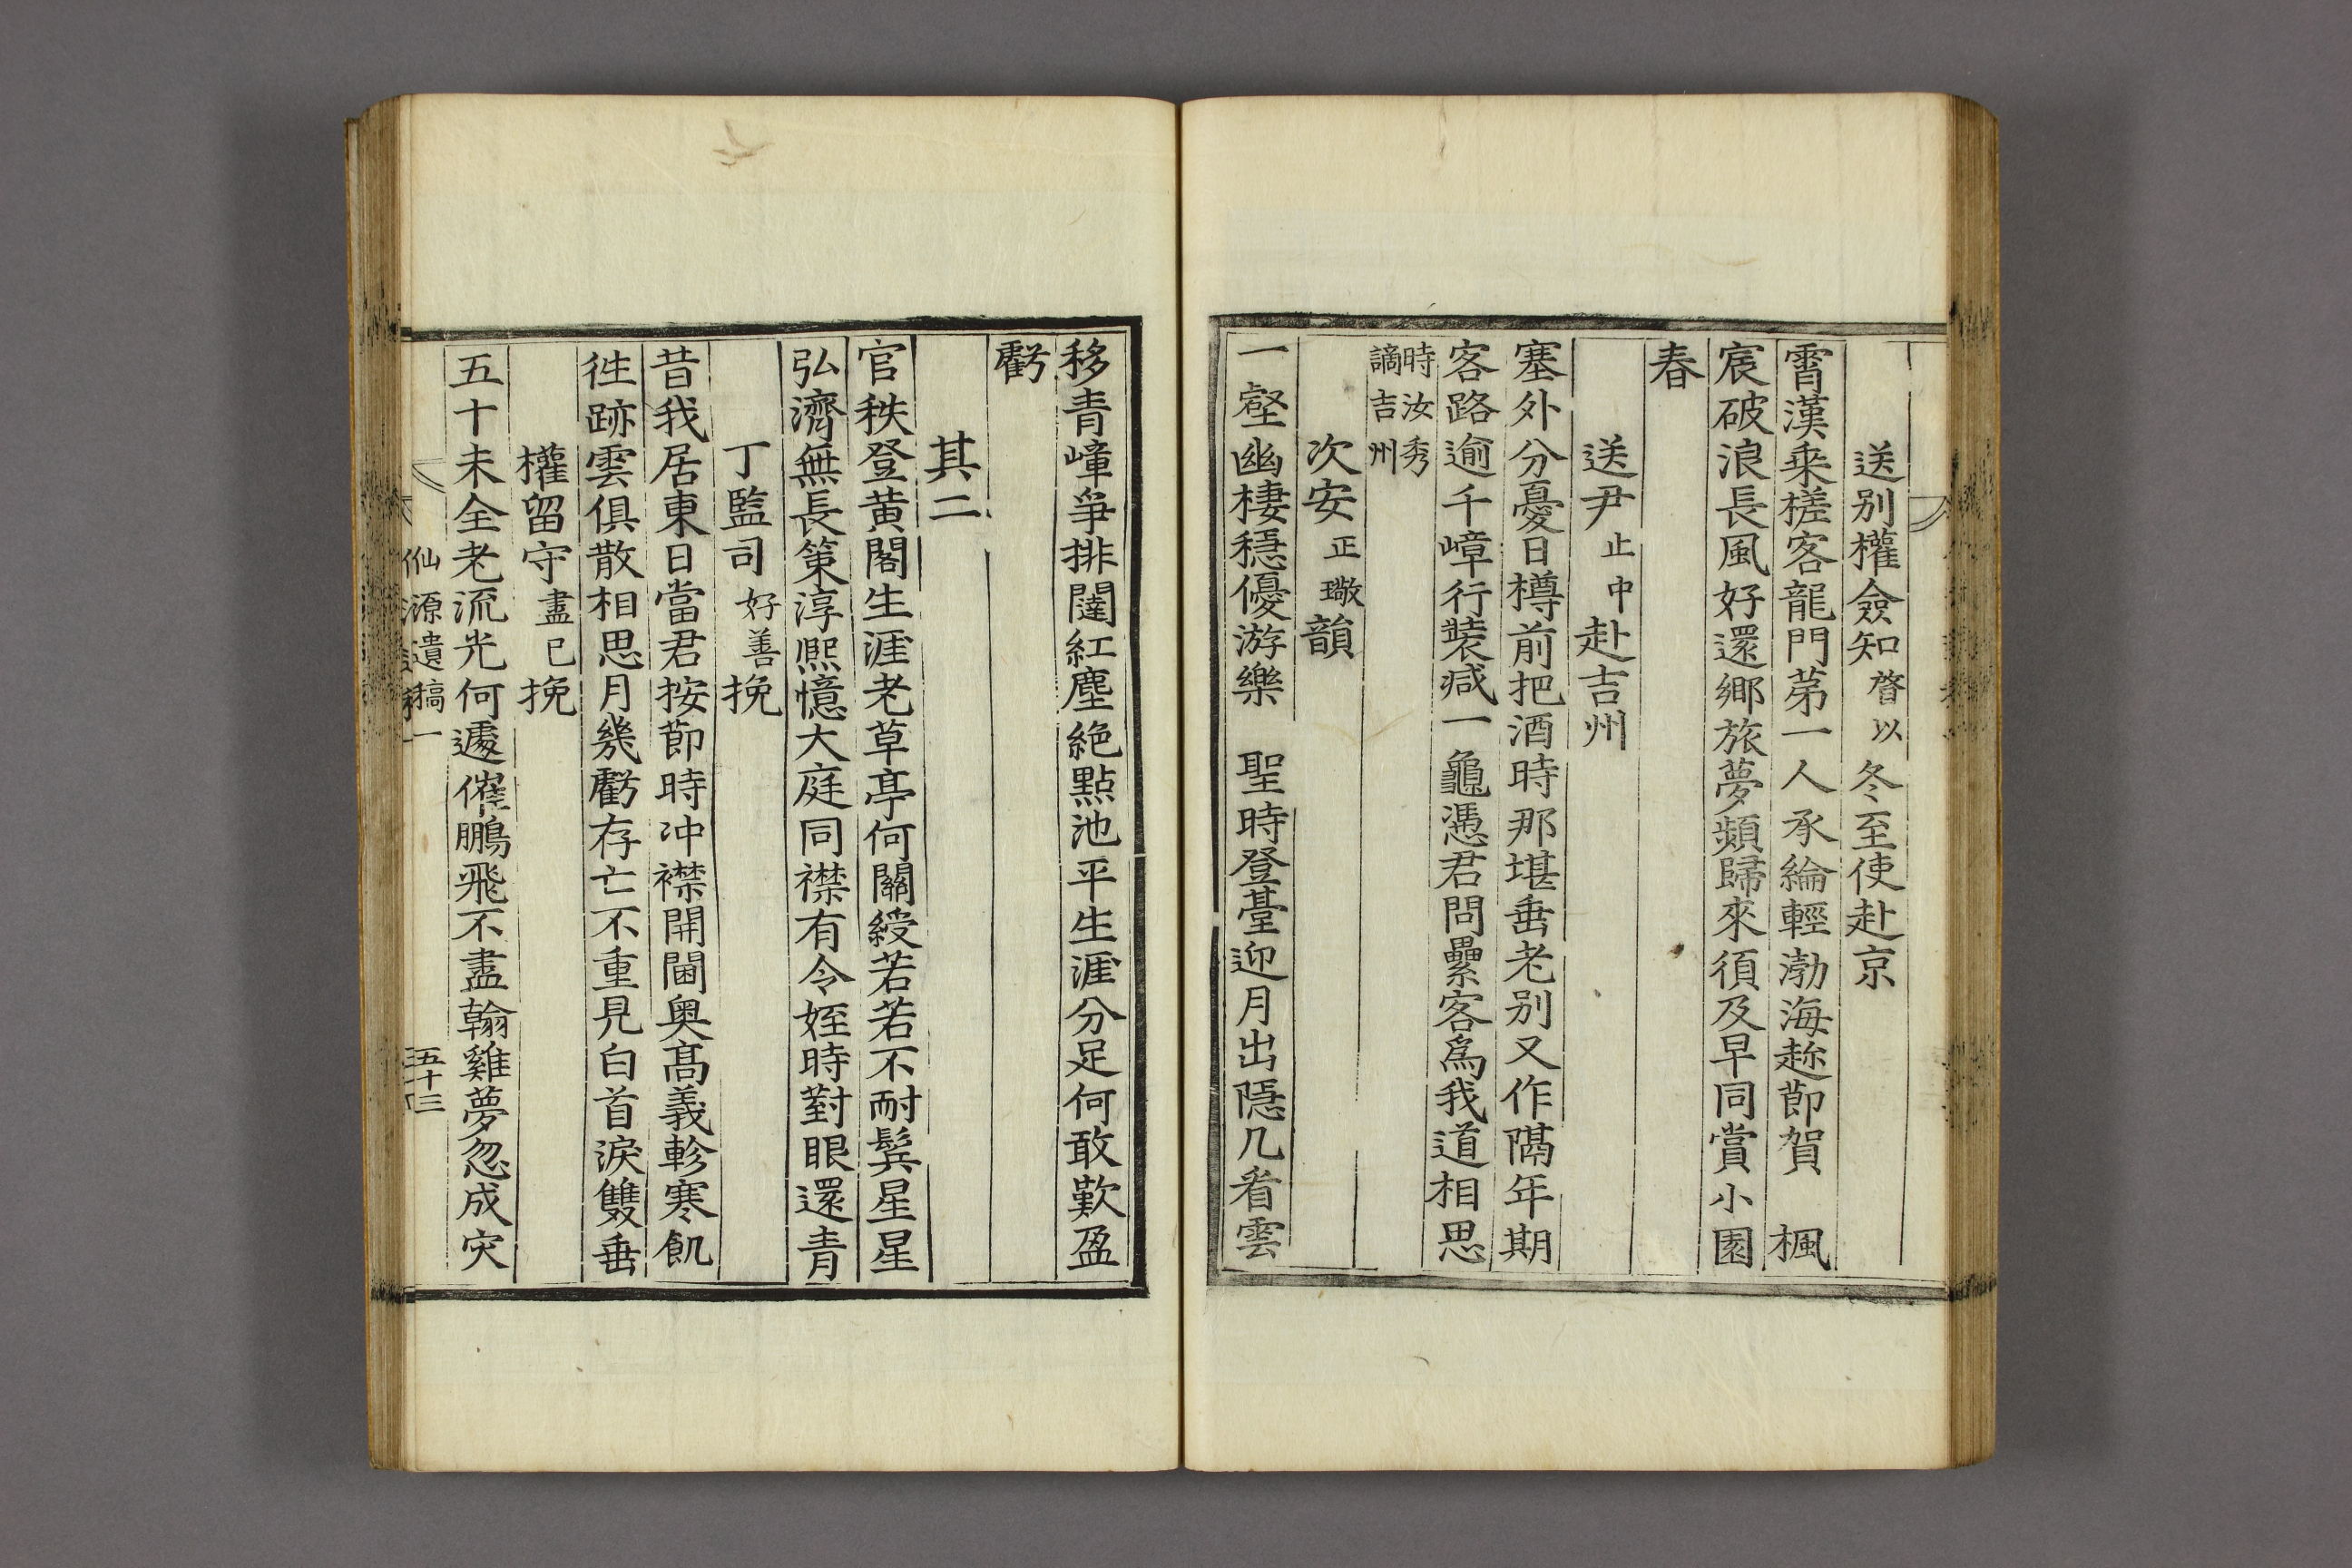 送別權僉知瞀以冬至使赴京
霄漢乘槎客龍門苐一人承綸輕渤海趂節賀 楓
宸破浪長風好還鄉旅夢頻歸來須及早同賞小園
春
送尹止中赴吉州
塞外分憂日樽前把酒時那堪垂老別又作隔年期
客路逾千嶂行裝减一龜憑君問纍客爲我道相思
時汝秀
謫吉州
次安正璥韻
一壑幽棲穩優游樂 聖時登臺迎月出隱几看雲
移青嶂爭排闥紅塵絶點池平生涯分足何敢歎盈
虧
其二
官秩登黃閣生涯老草亭何關綬若若不耐鬂星星
弘濟無長策淳熙憶大庭同襟有令姪時對眼還青
丁監司好善挽
昔我居東日當君按節時冲襟開閫奥高義軫寒飢
徃跡雲俱散相思月幾虧存亡不重見白首淚雙垂
權留守盡已挽
五十未全老流光何遽催鵬飛不盡翰雞夢忽成灾
仙源遺稿一
五十三